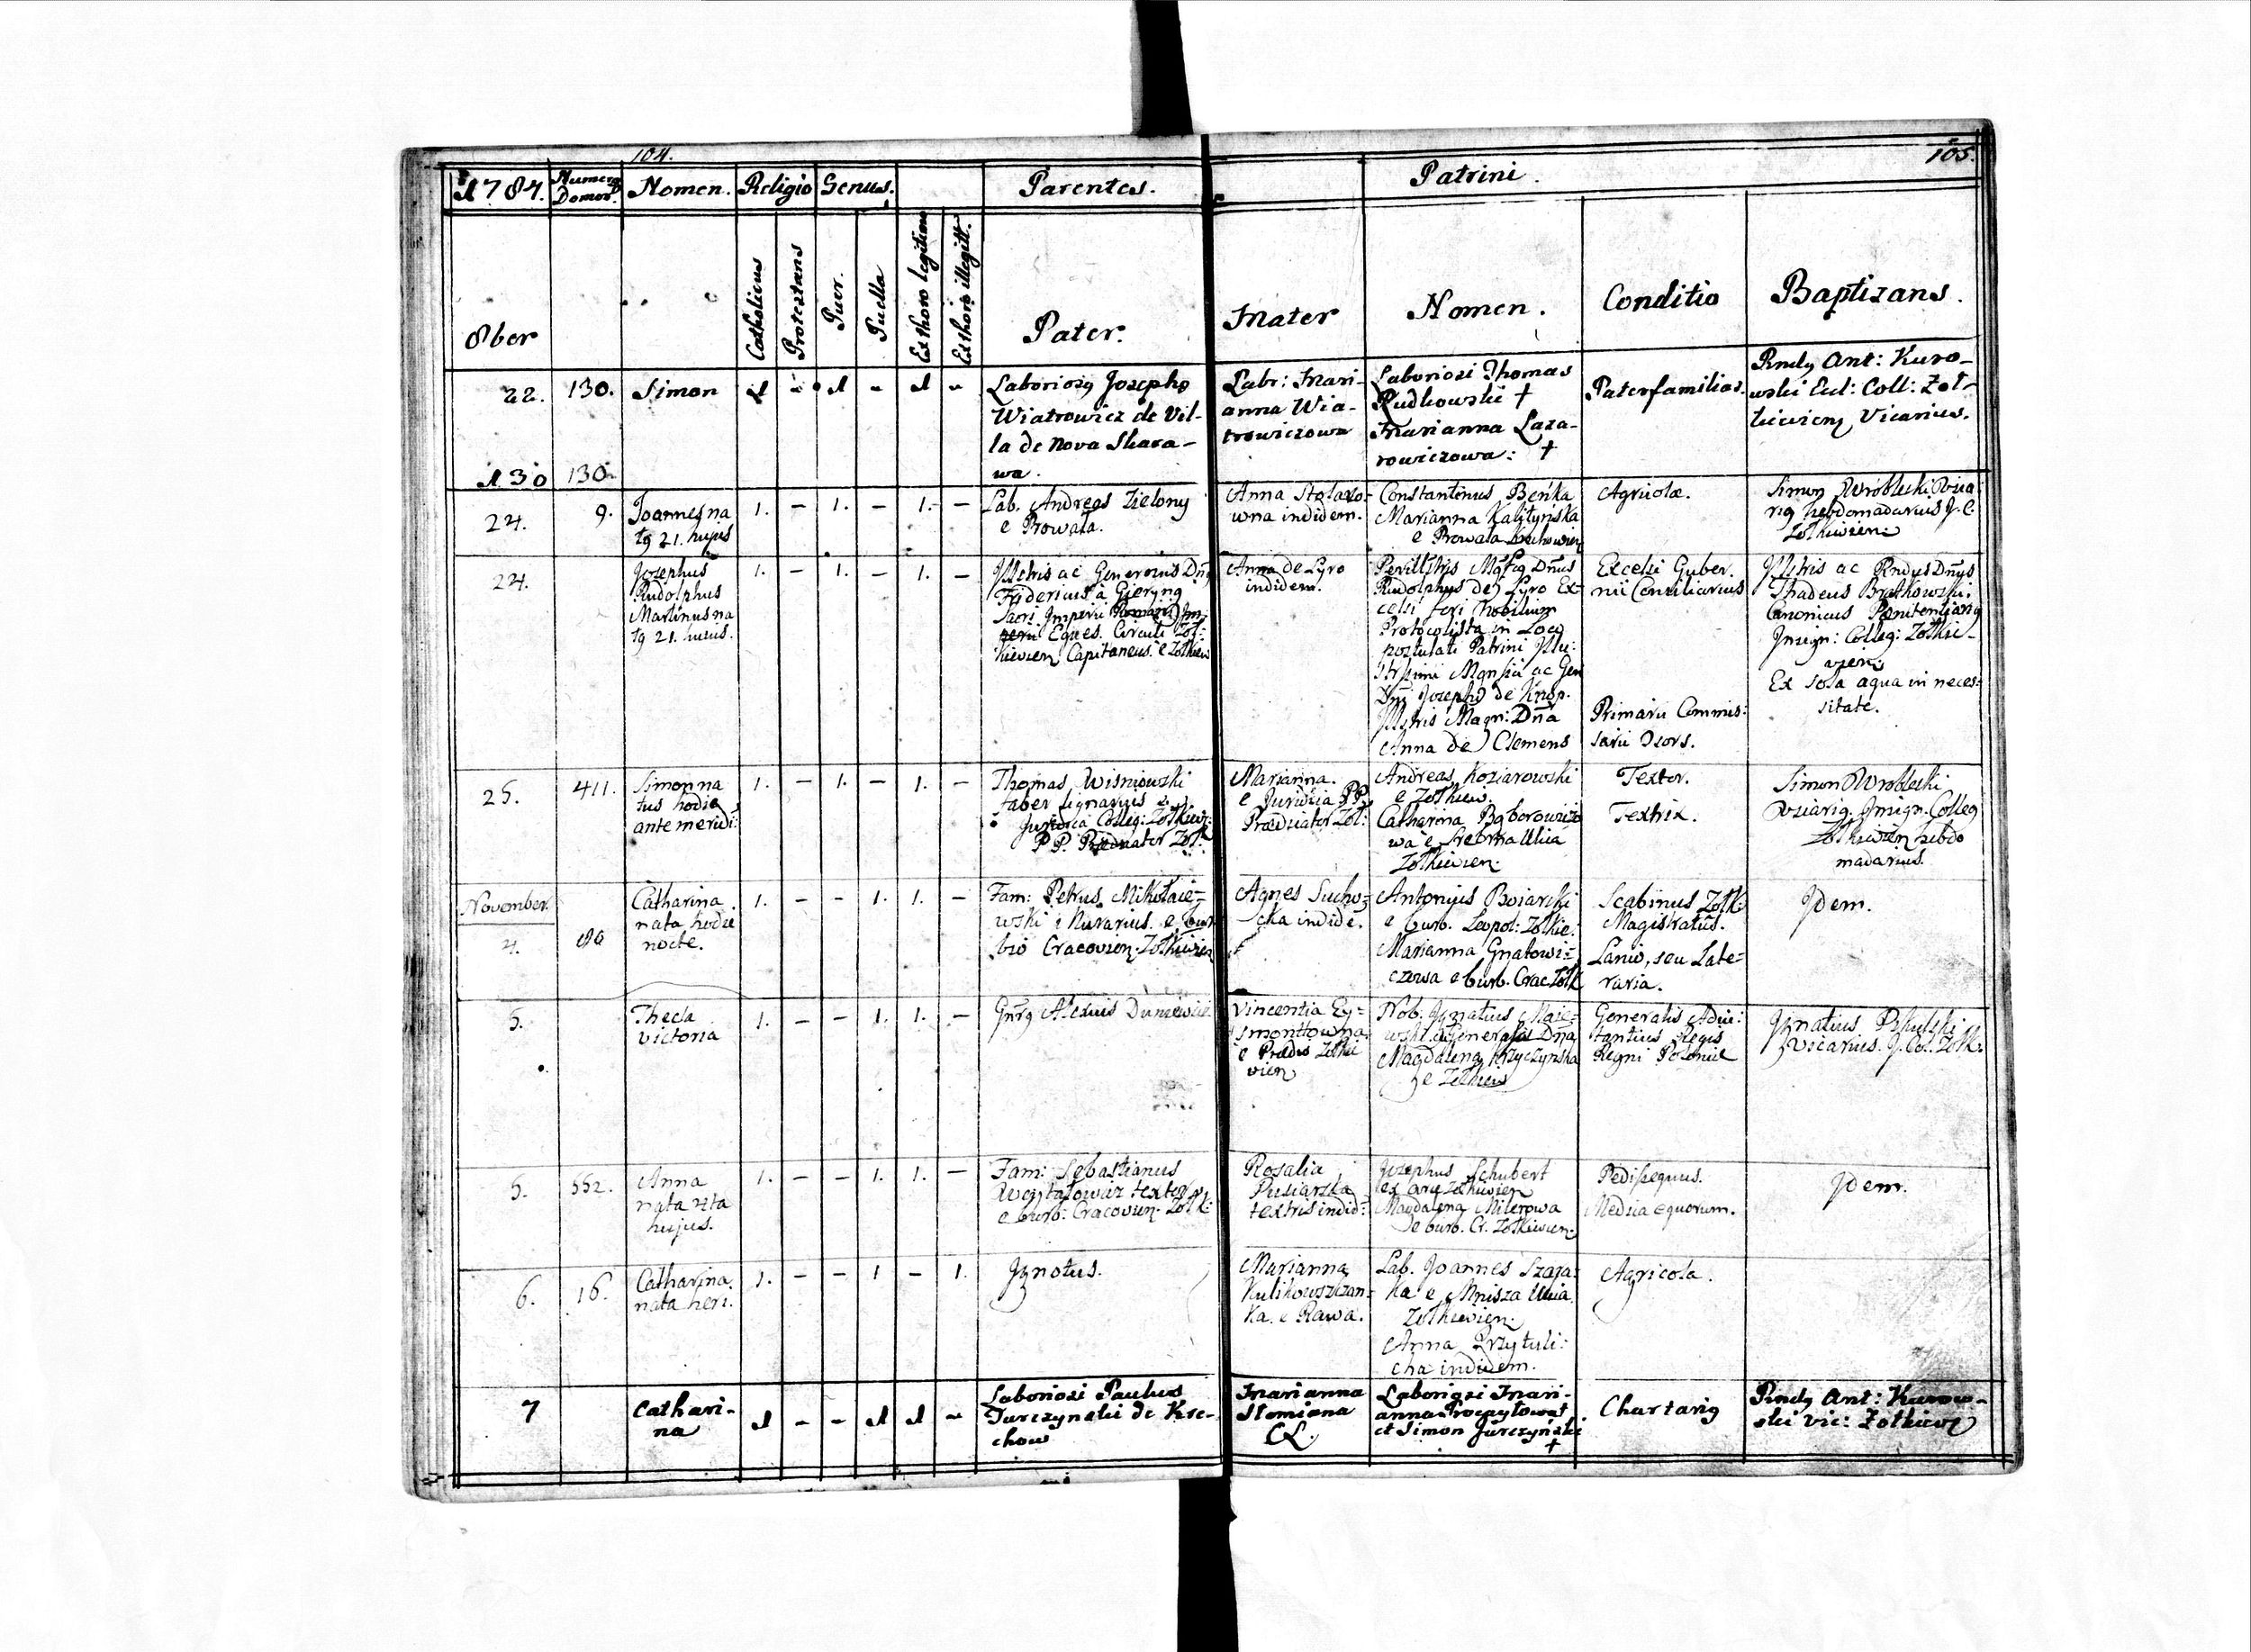 104.
105.
1787. Numerg Domor. Nomen. Religio Genus. Parentes. Patrini.
8ber Catholicus Protestans Puer. Puella Ex thoro legitimo Ex thoro illegitt. Pater. Mater Nomen. Conditio Baptizans.
22. 130. Simon 1 - 1 - 1 -
Laboriosg Josephg
Wiatrowicz de Vil-
la de Nova Skara-
wa.
Labr: Mari-
anna Wia-
trowiczowa
Laboriosi Thomas
Rudkowski †
Marianna Laza-
rowiczowa: †
Paterfamilias.
Rndg Ant: Kuro-
wski Eccl: Coll: Zol-
Vicarius.
130 130
24. 9. Joannes na
tg 21. hujus
1. - 1. - 1. -
Lab. Andreas Zielony
e Prowala.
Anna Stolaro-
wna indidem.
Constantinus Beńka
Marianna Kalityńska
e Prowala
Agricolæ.
Simon Wroblecki Vica
rig hebdomadarius J. C.
Zolkievien:
24. Josephus
Rudolphus
Martinus na
tg 21. huius.
1. - 1. - 1. -
Illstris ac Generosus Dn
Fridericus a Gieryng
Sacri Imperii
Eques. Circuli Zol:
kievien Capitaneus. e Zolkiew
Anna de Lyro
indidem.
Perillstris Mgfcg Dnus
Rudolphus de Lyro Ex-
celsi fori Nobilium
Protocolista in Loco
postulati Patrini Illu:
ac Gen
Dni Josephi de
Illstris Magn: Dna
Anna de Clemens
Excelsi Guber.
nii Consiliarius
Primarii Commis:
sarii Uxors.
Illstris ac Rndus Dnus
Thadeus Bratkowski.
Canonicus Pœnitentiarig
Insign: Colleg: Zolkie-
vien:
Ex sola aqua in neces-
sitate.
25. 411. Simon na
tus hodie
ante meridi:
1. - 1. - 1. -
Thomas Wisniowski
faber lignarius e
Juridica Colleg: Zolkiew:
PP. Prædicator Zol:
Marianna.
e Juridica PP.
Prædicator Zol:
Andreas Koziarowski
e Zolkiew.
Catharina
wa e Srebrna Ulica
Zolkievien.
Textor.
Textrix.
Simon Wroblecki
Vicarig. Insign. Colleg
Zolkievien hebdo
madarius.
November.
4. 80 Catharina
nata hodie
nocte.
1. - - 1. 1. -
Fam: Petrus Mikołaie-
wski Murarius. e bur
bio Cracovien. Zolkievien
Agnes Sucho-
cka indide.
Antonius Boiarski
e burb. Leopol: Zolkie:
Marianna Gnatowi-
czowa e burb. Crac Zolk
Scabinus Zolk:
Magistratus.
Lanio, seu Late-
raria.
Idem.
5. Thecla
Victoria
1. - - 1. 1. -
Gnrg Alexius
Vincentia Ey-
smonttowna
e Prædio Zolkie
vien
Nob. Ignatius Maie-
wski. Generosa Dna
Magdalena Krzyczynska
e Zolkiew
Generalis Adiu:
tantius Regis
Regni Poloniæ
Ignatius
Vicarius. J. Col. Zolk.
5. 552. Anna
nata 4ta
hujus.
1. - - 1. 1. -
Fam: Sebastianus
textor
e burb: Cracovien. Zolk:
Rosalia
Pusiarska
textrix indid:
Josephus Schubert
ex arce Zolkievien
Magdalena Milerowa
de burb. Cr. Zolkievien.
Pedissequus.
Medica equorum.
Idem.
6. 16. Catharina
nata heri.
1. - - 1 - 1.
Ignotus.
Marianna
Kulikowszczan-
ka. e Rawa.
Lab. Joannes Szaja-
ka e Mnisza Ulica
Zolkievien.
Anna Przytuli-
cha indidem.
Agricola.
7 Cathari-
na
1 - - 1 1 -
Laboriosi Paulus
Jurczynski de Kre-
chow
Marianna
Slomiana
CL.
Laboriosi Mari-
anna
et Simon Jurczyński
†
Chartarig
Rndg Ant: Kurow-
ski Vic: Zolkiew